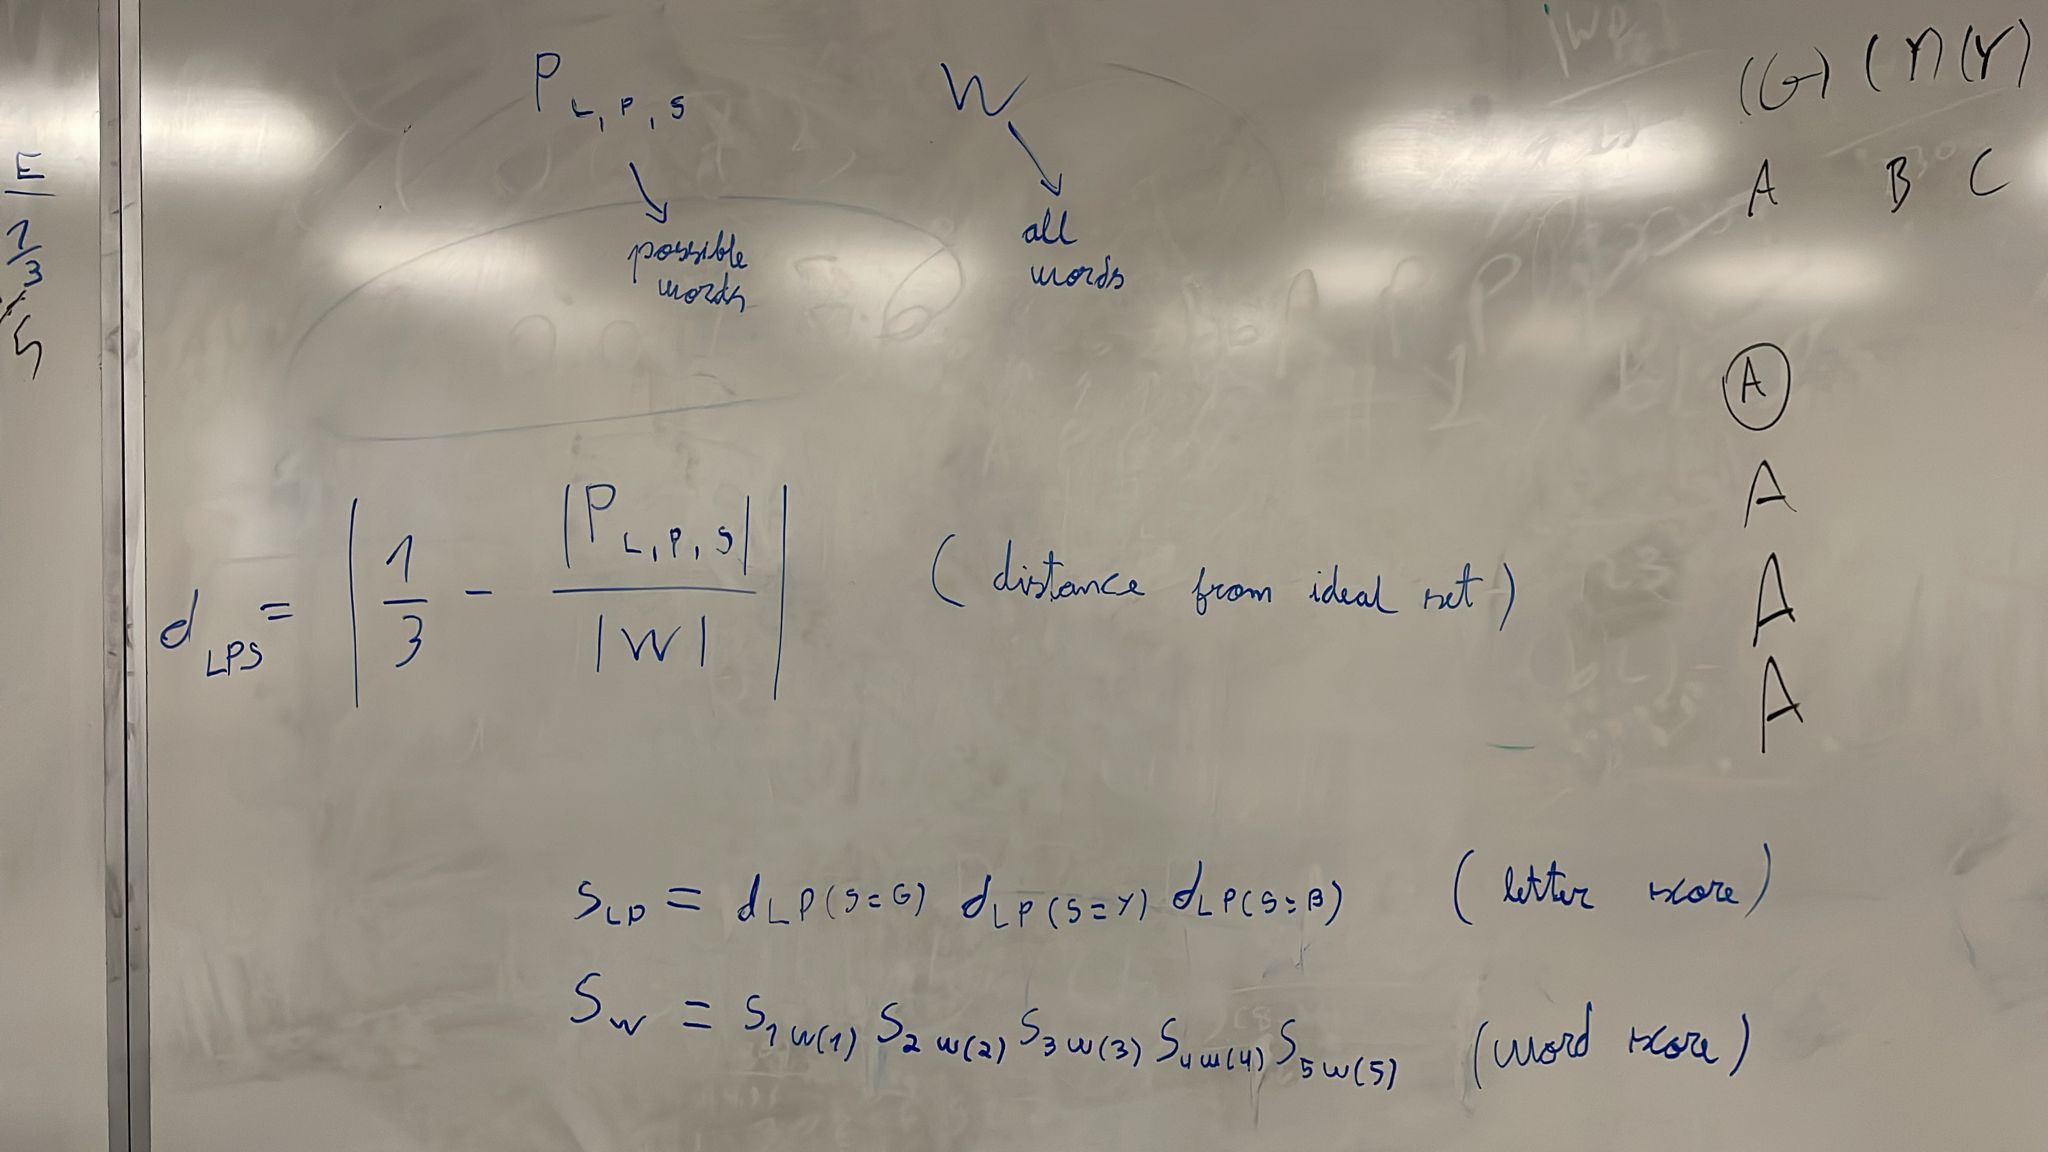 E
1/3
5
P L, P, S
W
possible
words
all
words
(G) (Y) (Y)
A B C
A
A
A
A
d LPS = | 1/3 - |P L, P, S| / |W| | (distance from ideal set)
S LP = d LP(S=G) d LP(S=Y) d LP(S=B) (letter score)
S W = S 1 W(1) S 2 W(2) S 3 W(3) S 4 W(4) S 5 W(5) (word score)